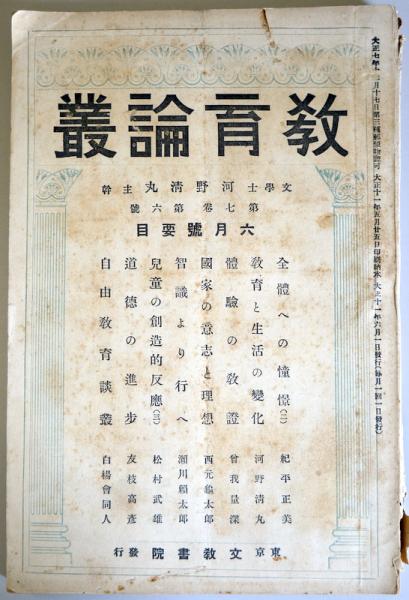 大正七年十二月十七日第三種郵便物認可 大正十一年五月廿五日印刷納本 大正十一年六月一日發行(毎月一回一日發行)
教育論叢
文學士河野清丸主幹
第七卷第六號
六月號要目
全體への憧憬(二) 紀平正美
教育と生活の變化 河野清丸
體驗の教證 曾我量深
國家の意志と理想 西元龜太郎
智識より行へ 瀬川頼太郎
兒童の創造的反應(三) 松村武雄
道德の進步 友枝高彦
自由教育談叢 白楊會同人
東京 文教書院 發行